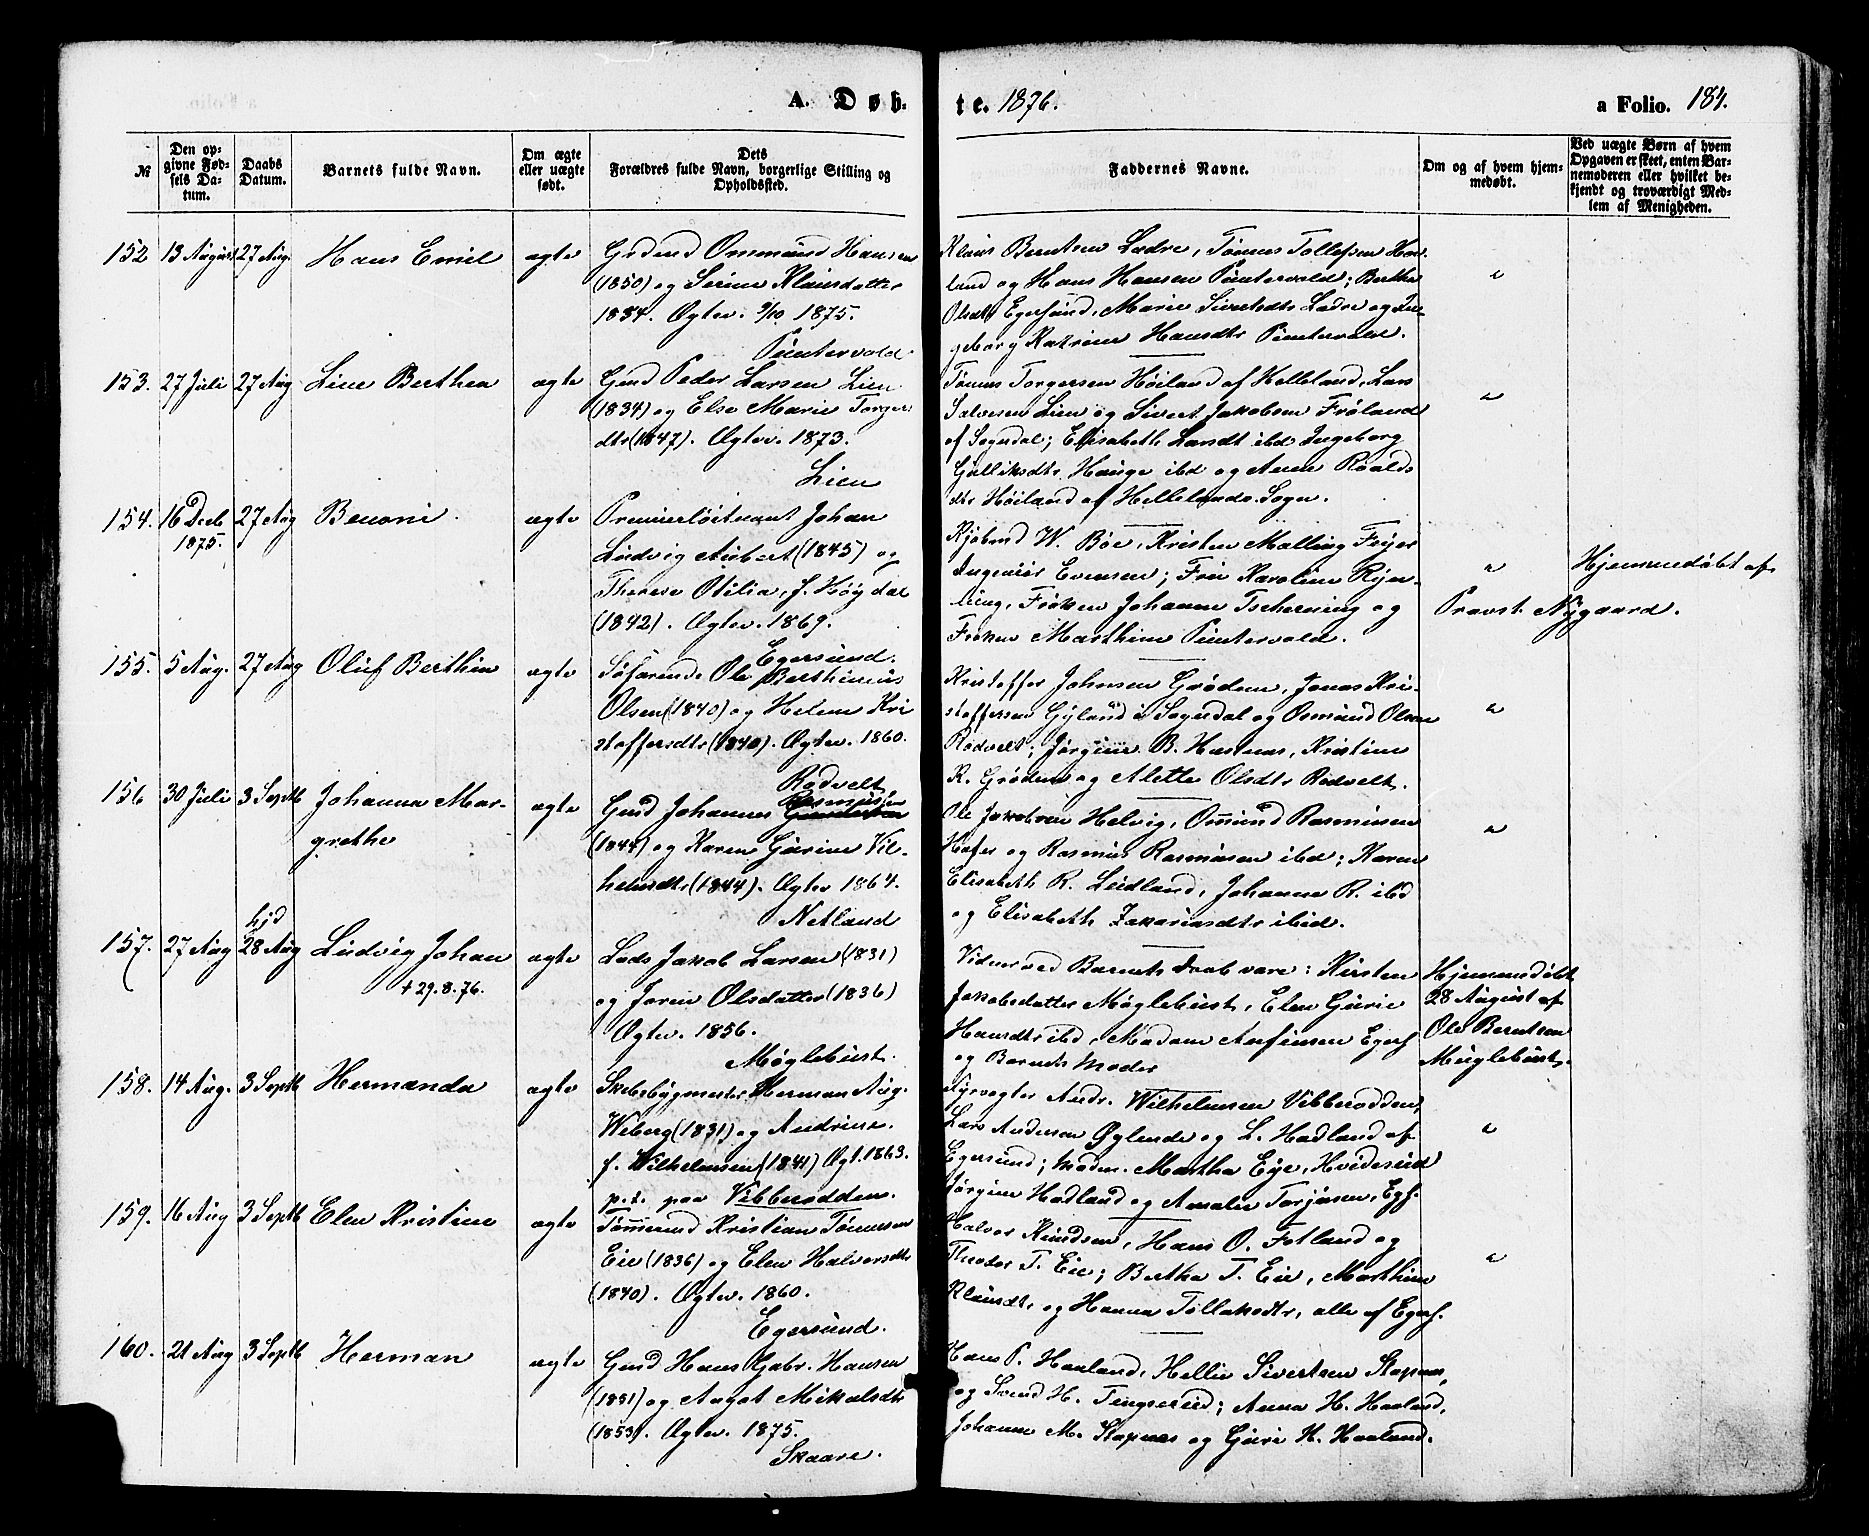 A. Døb-
te. 1876.
a Folio. 184.
№
Den opgivne Fødsels Datum.
Daabs Datum.
Barnets fulde Navn.
Om ægte eller uægte født.
Dets Forældres fulde Navn, borgerlige Stilling og Opholdssted.
Faddernes Navne.
Om og af hvem hjemmedøbt.
Ved uægte Børn af hvem Opgaven er skeet, enten Barnemoderen eller hvilket bekjendt og troværdigt Medlem af Menigheden.
152 13 August 27 Aug. Hans Emil ægte
Gaard Ommund Hansen
(1850) og Serine Klausdatter
1854. Ægtev. 9/10 1875.
Puntervold
Klaus Berntsen Ladre, Tønnes Tollefsen Hov-
land og Hans Hansen Puntervold; Berthe
Olsdtr Egersund, Marie Sivertsdtr Ladre og In-
geborg Katrine Hansdtr Puntervold.
"
153. 27 Juli 27 Aug Line Berthea ægte
Gmd Peder Larsen Lien
(1834) og Else Marie Torgers
dtr (1847). Ægtev. 1873.
Lien
Tønnes Torgersen Høiland af Helleland, Lars
Salvesen Lien og Sivert Jakobsen Frøland
af Sogndal; Elisabeth Landt ibd Ingeborg
Gulliksdtr Hauge ibd og Anne Roalds
dtr Høiland af Hellelands Sogn.
"
154. 16 Decb 1875. 27 Aug Benoni. ægte
Premierløitnant Johan
Ludvig Aubert (1845) og
Therese Otilia, f. Høydal
(1842). Ægtev. 1869.
Egersund.
Kjøbmd W. Bøe, Kristen Malling Feyer
Ingeniør Evensen; Fru Karoline Ryn-
ning, Frøken Johanne Tscherning og
Frøken Marthine Puntervold.
" Hjemmedøbt af
Provst Nygaard.
155. 5 Aug. 27 Aug Oluf Berthin ægte
Søfarende Ole Berthinius
Olsen (1840) og Helene Kri
stoffersdtr (1840). Ægtev. 1860.
Rødvelt,
Kristoffer Johnsen Grødem, Jonas Kri-
stoffersen Gyland i Sogndal og Osmund Olsen
Rødvelt; Jørgine B. Husnes, Kristine
K. Grødem og Alette Olsdtr Rødvelt.
"
156 30 Juli 3 Septb Johanna Mar-
grethe ægte
Gmd Johannes Rasmussen
(1844) og Karen Gurine Vil-
helmsdtr (1844). Ægtev 1864.
Netland
Ole Jakobsen Helvig, Omund Rasmussen
Hafer og Rasmus Rasmussen ibd; Karen
Elisabeth R. Leidland, Johanne R. ibd
og Elisabeth Zakariasdtr ibid.
"
157. 27 Aug hjd 28 Aug Ludvig Johan ægte
+ 29.8.76.
Lods Jakob Larsen (1831)
og Joren Olsdatter (1836)
Ægtev. 1856.
Møglebust.
Vidner ved Barnets Daab vare: Kirsten
Jakobsdatter Møglebust, Elen Gurie
Hansdtr ibd, Madam Arfinsen Egers
og Barnets Moder
Hjemmedøbt
28 August af
Ole Berntsen
Møglebust.
158. 14 Aug. 3 Septb Hermanda ægte
Skibsbygmester Herman Aug.
Wiberg (1831) og Andrine
f. Wilhelmsen (1841) Ægt. 1863.
p.t. paa Vibberodden.
Fyrvogter Andr. Wilhelmsen Vibberodden,
Lars Andersen Øglende og L. Hadland af
Egersund; Madm. Martha Eye, Hvideseid
Jørgine Hadland og Amalie Torjusen, Egs.
"
159. 16 Aug 3 Septb Elen Kristine ægte
Tømmermd Kristian Tønnesen
Eie (1836) og Elen Halvorsdtr
(1840). Ægtev. 1860.
Egersund.
Halvor Knudsen, Hans O. Fotland og
Theodor T. Eie; Bertha T. Eie, Marthine
Klausdt. og Hanna Tollaksdtr, alle af Egers.
"
160. 21 Aug 3 Septb Herman ægte
Gmd Hans Gabr. Hansen
(1851) og Aagot Mikalsdtr
(1853). Ægtev. 1875.
Skaare.
Hans P. Haaland, Hellik Sivertsen Stapnes,
og Svend H. Tengsereid; Anna H. Haaland,
Johanne M. Stapnes og Guri H. Haaland.